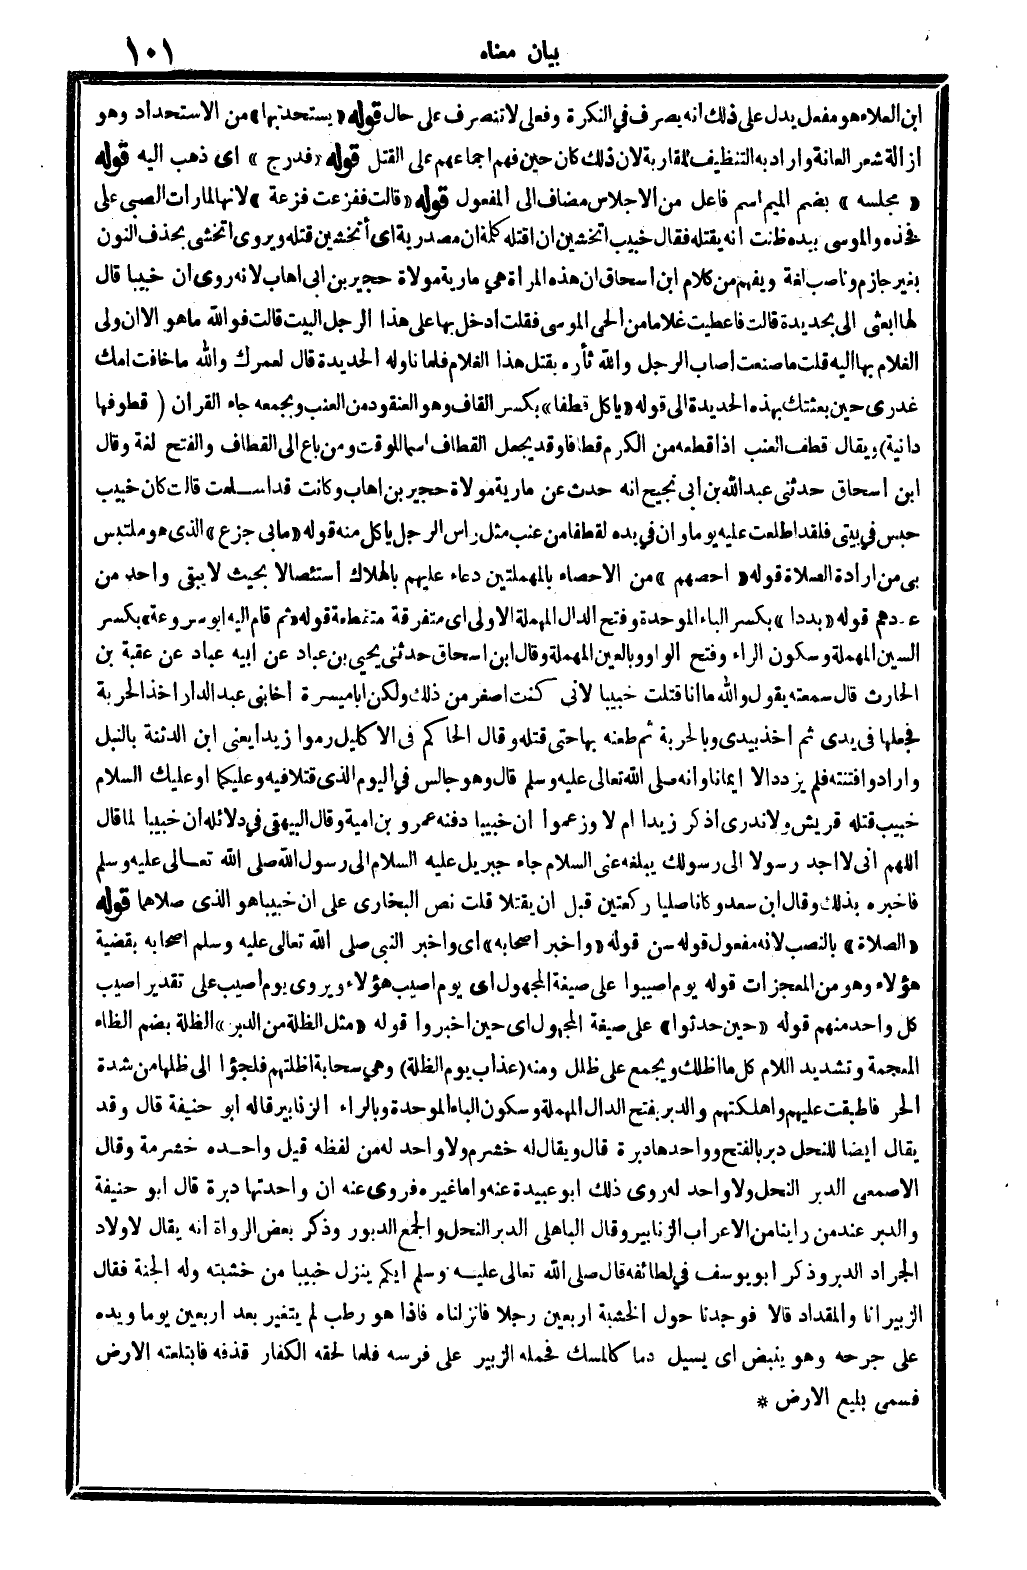 بيان معناه
١٠١
ابن العلاء هو مفعل يدل على ذلك انه يصرف في النكرة وفعلى لا تنصرف على حال قوله «يستحد بها» من الاستحداد وهو
ازالة شعر العانة واراد به التنظيف للقاربة لان ذلك كان حين فهم اجماعهم على القتل قوله «فدرج» اى ذهب اليه قوله
«مجلسه» بضم الميم اسم فاعل من الاجلاس مضاف الى المفعول قوله «قالت ففزعت فزعة» لانها لما رات الصبى على
فخذه والموسى بيده ظنت انه يقتله فقال خبيب اتخشين ان اقتله كلمة ان مصدرية اى أتخشين قتله ويروى اتخشى بحذف النون
بغير جازم وناصب لغة ويفهم من كلام ابن اسحاق ان هذه المرأة هي مارية مولاة حجير بن ابى اهاب لانه روى ان خبيبا قال
لها ابعثى الى بحديدة قالت فاعطيت غلاما من الحى الموسى فقلت ادخل بها على هذا الرجل البيت قالت فوالله ماهو الا ان ولى
الغلام بها اليه قلت ما صنعت أصاب الرجل والله ثأره بقتل هذا الغلام فلما ناوله الحديدة قال لعمرك والله ما خافت امك
غدرى حين بعثتك بهذه الحديدة الى قوله «ياكل قطفا» بكسر القاف وهو العنقود من العنب وبجمعه جاء القران (قطوفها
دانية) ويقال قطف العنب اذا قطعه من الكرم قطافا وقد يجعل القطاف اسما للوقت ومن باع الى القطاف والفتح لغة وقال
ابن اسحاق حدثنى عبد الله بن أبى نجيح انه حدث عن مارية مولاة حجير بن اهاب وكانت قد اسلمت قالت كان خبيب
حبس في بيتى فلقد اطلعت عليه يوما وان في يده لقطفا من عنب مثل راس الرجل ياكل منه قوله «مابى جزع» الذى هو ملتبس
بى من ارادة الصلاة قوله «احصهم» من الاحصاء بالمهملتين دعاء عليهم بالهلاك أستئصالا بحيث لا يبقى واحد من
عددهم قوله «بددا» بكسر الباء الموحدة وفتح الدال المهملة الاولى اى متفرقة متقطعة قوله «ثم قام اليه ابو سروعة» بكسر
السين المهملة وسكون الراء وفتح الواو وبالعين المهملة وقال ابن اسحاق حدثنى يحيى بن عباد عن ابيه عباد عن عقبة بن
الحارث قال سمعته يقول والله ما انا قتلت خبيبا لانى كنت اصغر من ذلك ولكن اباميسرة أخابنى عبد الدار اخذ الحربة
فجعلها فى يدى ثم أخذ بيدى وبالحربة ثم طعنه بها حتى قتله وقال الحاكم فى الاكليل رموا زيدا يعنى ابن الدثنة بالنبل
وارادوا فتنته فلم يزدد الا ايمانا وانه صلى الله تعالى عليه وسلم قال وهو جالس في اليوم الذى قتلا فيه وعليكما او عليك السلام
خبيب قتله قريش ولا ندرى اذكر زيدا ام لا وزعموا ان خبيبا دفنه عمرو بن امية وقال البيهقى في دلائله أن خبيبا لما قال
اللهم انى لا اجد رسولا الى رسولك يبلغه عنى السلام جاء جبريل عليه السلام الى رسول الله صلى الله تعالى عليه وسلم
فاخبره بذلك وقال ابن سعد وكانا صليا ركعتين قبل ان يقتلا قلت نص البخارى على ان خبيبا هو الذى صلاهما قوله
«الصلاة» بالنصب لانه مفعول قوله سن قوله «واخبر أصحابه» اى واخبر النبى صلى الله تعالى عليه وسلم اصحابه بقضية
هؤلاء وهو من المعجزات قوله يوم اصيبوا على صيغة المجهول اى يوم اصيب هؤلاء ويروى يوم أصيب على تقدير اصيب
كل واحد منهم قوله «حين حدثوا» على صيغة المجهول اى حين اخبروا قوله «مثل الظلة من الدبر» الظلة بضم الظاء
المعجمة وتشديد اللام كل ما اظلك ويجمع على ظلل ومنه (عذاب يوم الظلة) وهي سحابة اظلتهم فلجؤا الى ظلها من شدة
الحر فاطبقت عليهم واهلكتهم والدبر بفتح الدال المهملة وسكون الباء الموحدة وبالراء الزنابير قاله ابو حنيفة قال وقد
يقال أيضا للنحل دبر بالفتح وواحدها دبرة قال ويقال له خشرم ولا واحد له من لفظه قيل واحده خشرمة وقال
الاصمعى الدبر النحل ولا واحد له روى ذلك ابو عبيدة عنه واما غيره فروى عنه ان واحدتها دبرة قال ابو حنيفة
والدبر عند من راينا من الاعراب الزنابير وقال الباهلى الدبر النحل والجمع الدبور وذكر بعض الرواة أنه يقال لاولاد
الجراد الدبر وذكر ابو يوسف في لطائفه قال صلى الله تعالى عليه وسلم ايكم ينزل خبيبا من خشبته وله الجنة فقال
الزبير انا والمقداد قالا فوجدنا حول الخشبة اربعين رجلا فانزلناه فاذا هو رطب لم يتغير بعد اربعين يوما ويده
على جرحه وهو ينبض اى يسيل دما كالمسك فحمله الزبير على فرسه فلما لحقه الكفار قذفه فابتلعته الارض
فسمى بليع الارض *